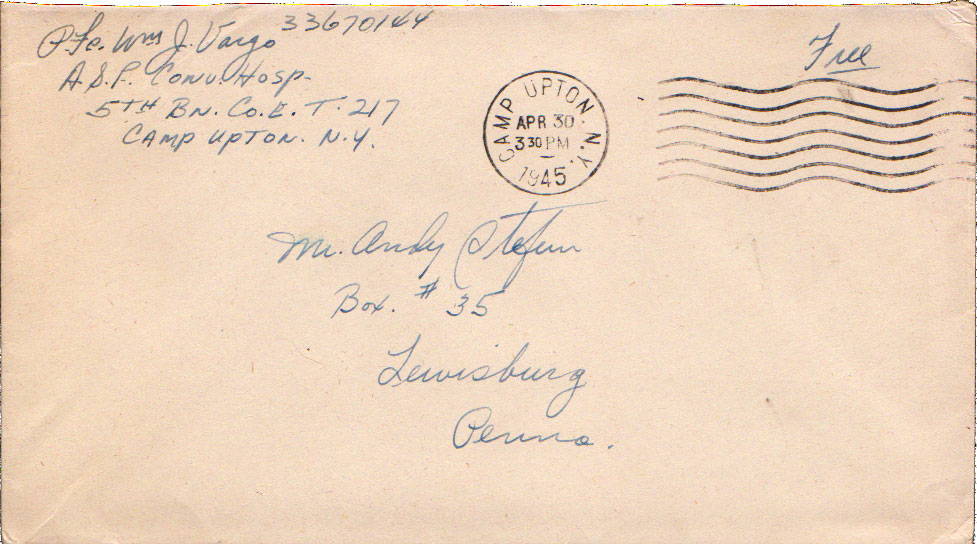 Pfc. Wm J. Vargo 33670144
A.S.F. Conv. Hosp-
5TH Bn. Co. E. T-217
CAMP UPTON. N.Y.
Free
CAMP UPTON. N.Y.
APR 30
330 PM
1945
Mr. Andy Stefun
Box. # 35
Lewisburg
Penna.